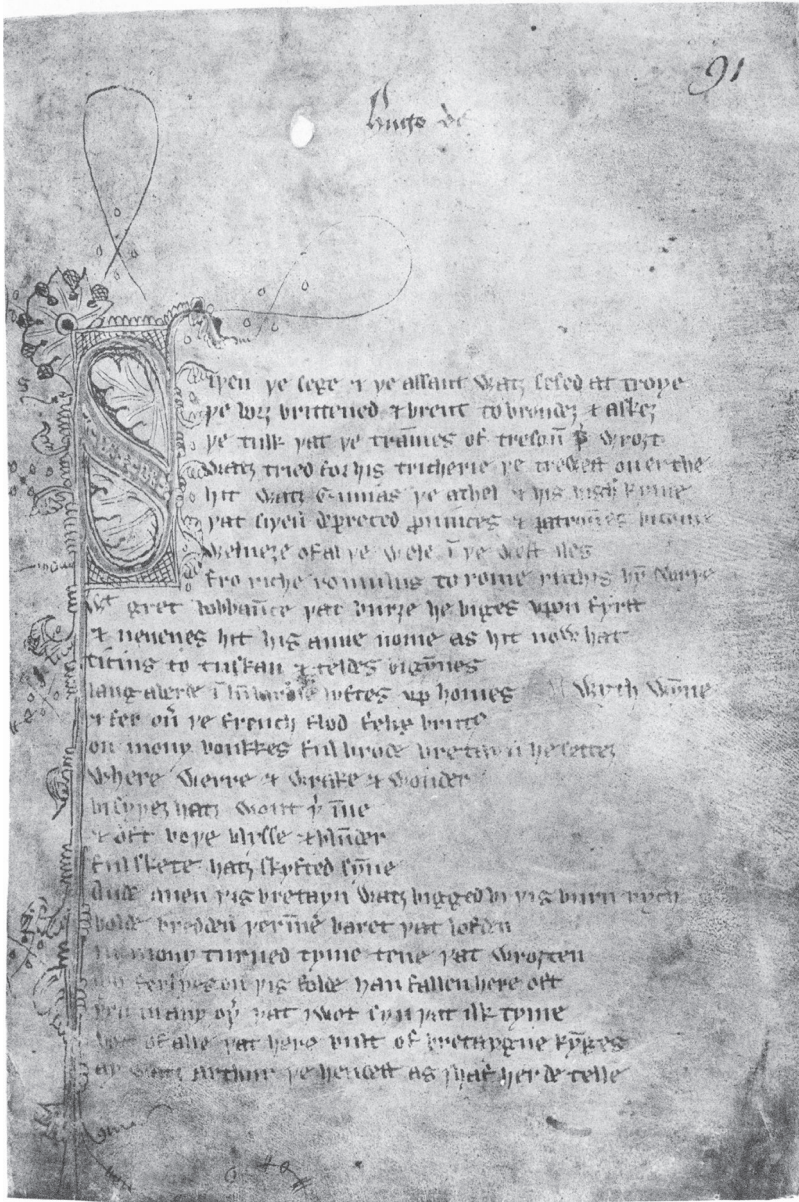 91
Hugo de
Siþen þe sege & þe assaut watz sesed at troye
þe borȝ brittened & brent to brondeȝ & askeȝ
þe tulk þat þe trāmes of tresoū þ̾ wroȝt
watz tried for his tricherie þe trewest on erthe
hit watz Ennias þe athel & his highe kynde
þat siþen depreced ꝓuinces & patroūes bicome
welneȝe of al þe wele ī þe west iles
fro riche romulus to rome ricchis hȳ swyþe
wᵗ gret bobbaūce þat burȝe he biges vpon fyrst
& neuenes hit his aune nome as hit now hat
ticius to tuskan & teldes bigȳnes
langaberde ī lūbardie lyftes vp homes wyth wȳne
& fer ou̾ þe french flod felix brutꝰ
on mony bonkkes ful brode bretayn he settez
where werre & wrake & wonder
bi syþez hatz wont þ̾ īne
& oft boþe blysse & blūder
ful skete hatz skyfted sȳne
Ande quen þis bretayn watz bigged bi þis burn rych
bolde bredden þ̾īne baret þat lofden
in mony turned tyme tene þat wroȝten
mo ferlyes on þis folde han fallen here oft
þen in any oþ̾ þat I wot syn þat ilk tyme
bot of alle þat here bult of bretaygne kȳges
ay watz arthur þe hendest as I haf herde telle